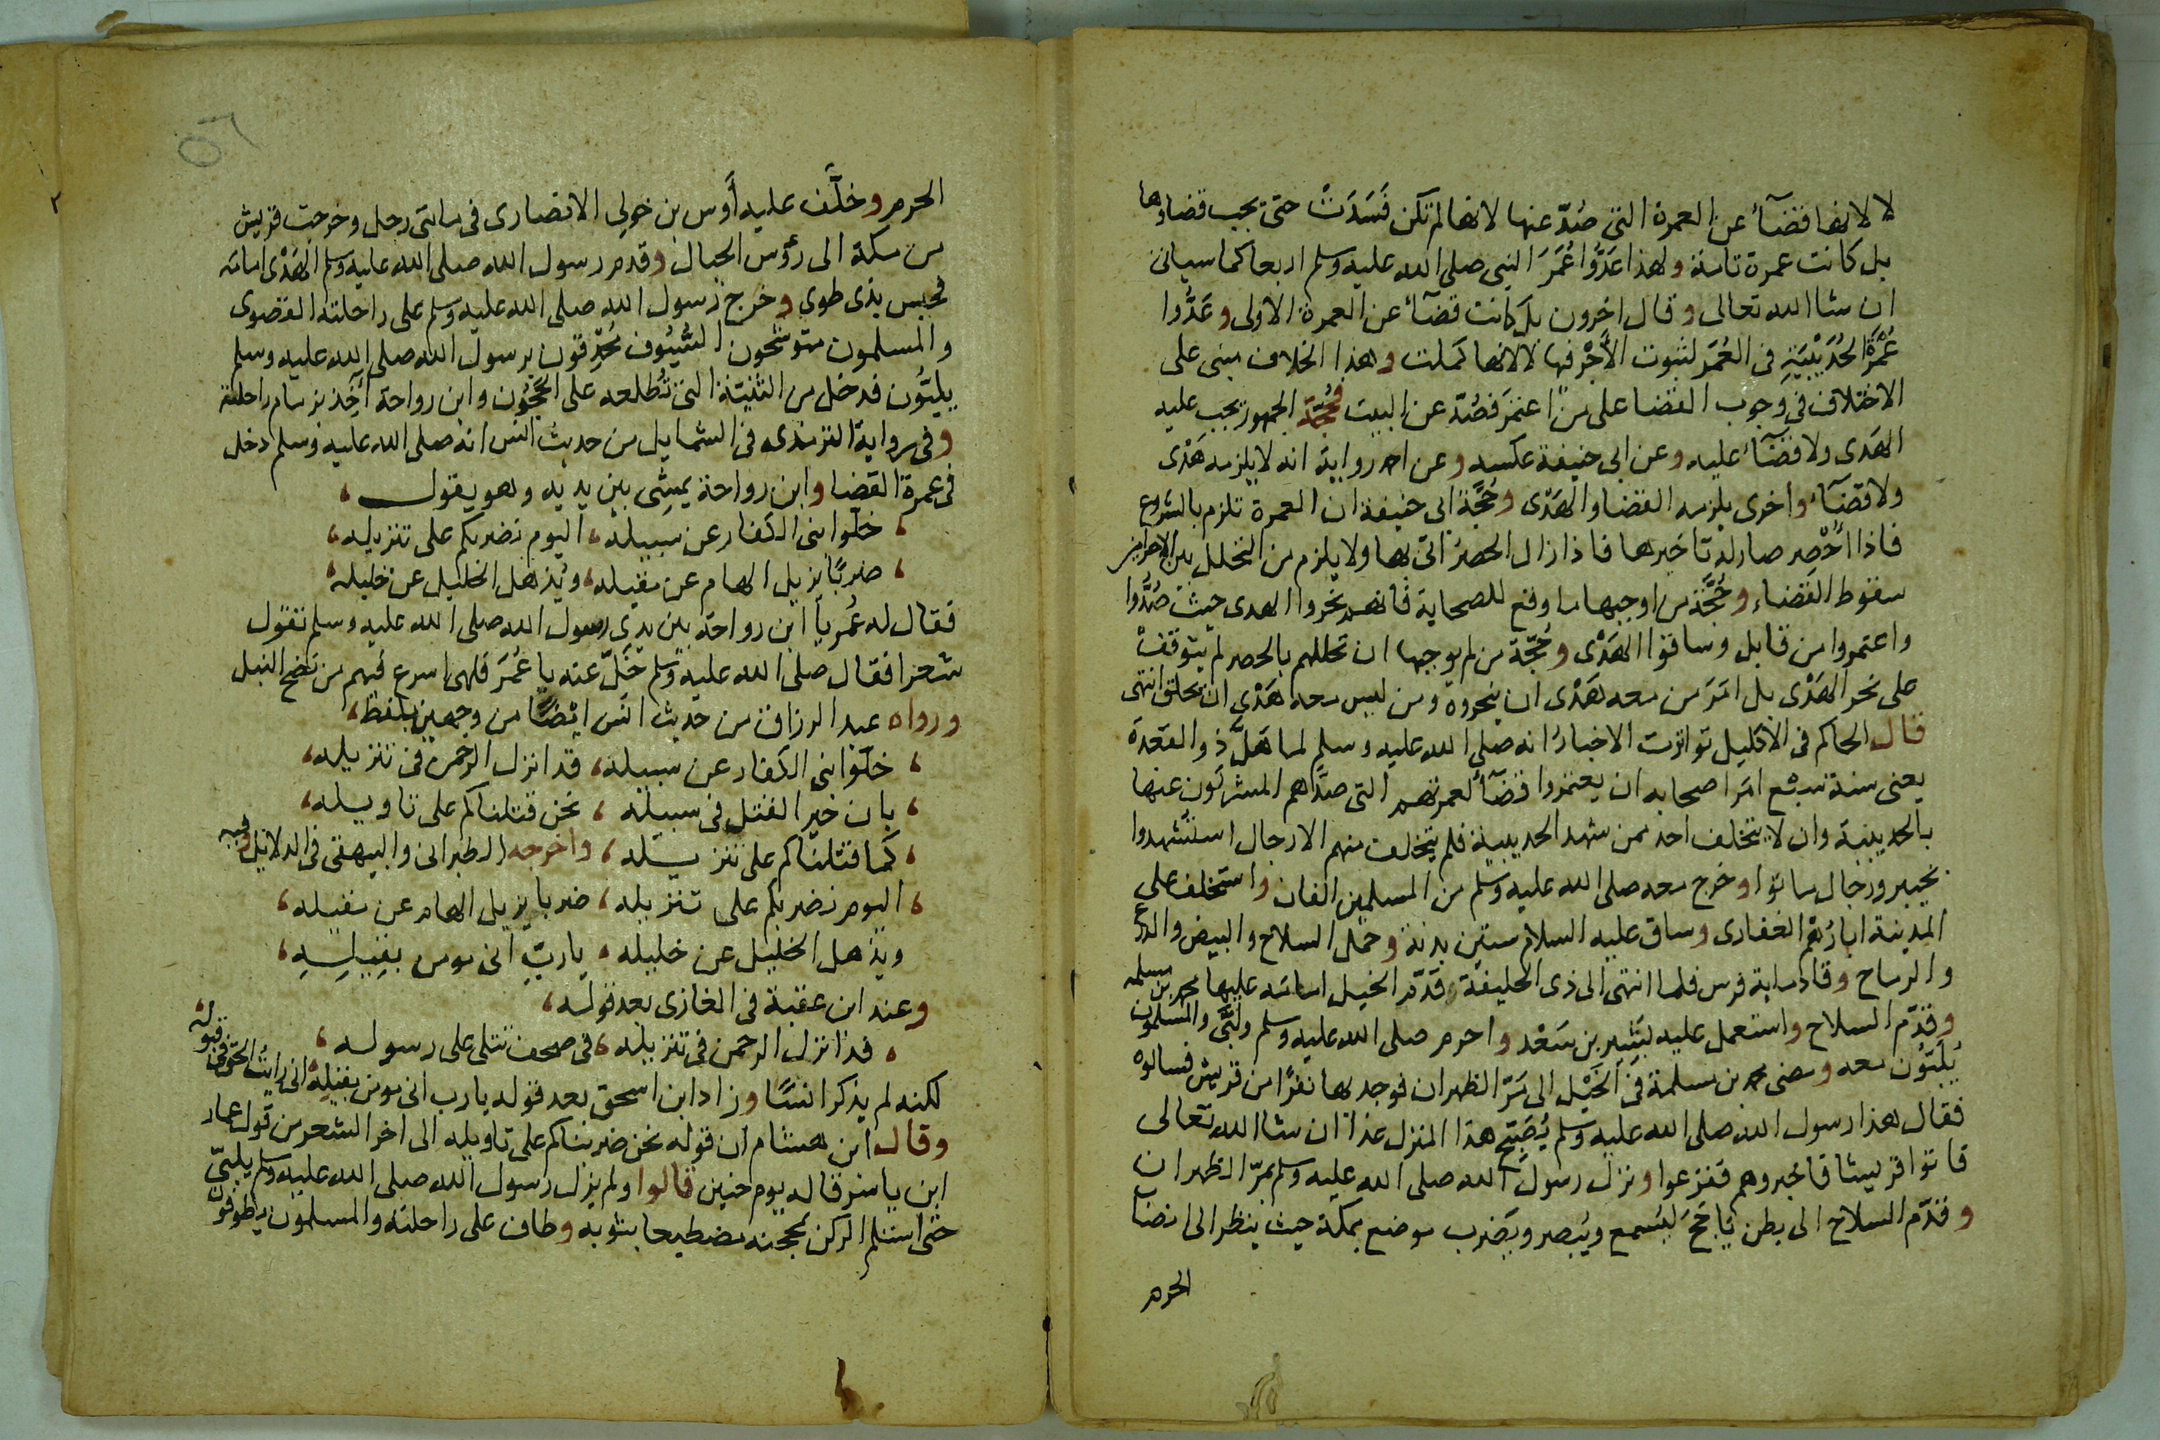 لا لانها قضآءً عن العمرة التى صُدّ عنها لانها لم تكن فَسَدَتْ حتى يجب قضاوها
بل كانت عمرة تامة ولهذا عَدُّوا عُمَرَ النبى صلى الله عليه وسلم اربعا كما سياتى
ان شا الله تعالى وقال اخرون بل كانت قضآءً عن العمرة الاولى وعَدُّوا
عُمْرَةَ الحُدَيْبِيَةِ فى العُمَر لثبوت الأَجْر فيها لا لانها كملت وهذا الخلاف مبنى على
الاختلاف فى وجوب القضا على من اعتمَر فصُدّ عن البيت فحُجّة الجمهور يجب عليه
الهَدى ولا قضآءَ عليه وعن ابى حنيفة عكسه وعن احمد رواية انه لا يلزمه هَدْى
ولا قضآءٌ واخرى يلزمه القضا والهَدْى وحُجَّة ابى حنيفة ان العمرة تلزم بالشروع
فاذا اُحْصِر صار له تاخيرها فاذا زال الحصرُ اتى بها ولا يلزم من التحلل بين الاحرامين
سقوط القضاء وحُجَّة من اوجبها ما وقع للصحابة فانهم نحروا الهدى حيث صُدُّوا
واعتمروا من قابل وساقوا الهَدْى وحُجّة من لم يوجبها ان تحللهم بالحصر لم يتوقف
على نحر الهَدْى بل امَرَ من معه هَدْى ان ينحروه ومن ليس معه هَدْى ان يحلق انتهى
قال الحاكم فى الاكليل تواترت الاخبارُ انه صلى الله عليه وسلم لما هَلَّ ذو القعدة
يعنى سنة سَبْع امَر اصحابه ان يعتمروا قضآءً لعمرتهم التى صدَّهم المشركون عنها
بالحديبية وان لا يتخلف احد ممن شهد الحديبية فلم يتخلف منهم الا رجال استشهدوا
بخيبر ورجال ماتوا وخرج معه صلى الله عليه وسلم من المسلمين الفان واستخلف على
المدينة ابا رُهْم الغفارى وساق عليه السلام ستين بدنة وحمل السلاح والبيض والدرع
والرماح وقاد ماية فرس فلما انتهى الى ذى الحليفة وقَدّم الخيل امامه عليها محمد بن مسلمه
وقدّم السلاح واستعمل عليه بَشِير بن سَعْد واحرم صلى الله عليه وسلم ولَبَّى والمسلمون
يُلَبُّون معه ومضى محمد بن مسلمة فى الخَيْل الى مَرّ الظهران فوجد بها نفرًا من قريش فسالوه
فقال هذا رسول الله صلى الله عليه وسلم يُصَبّح هذا المنزل غدًا ان شا الله تعالى
فاتوا قريشا فاخبروهم ففزعوا ونزل رسول الله صلى الله عليه وسلم بمرّ الظهران
وقدّم السلاح الى بطن يَاجَجَ كيَسْمع ويُبصر ويَضرب موضع بمكة حيث ينظر الى انصاب
الحرم
٥٦
الحرم وخلَّف عليه أوس بن خولى الانصارى فى مايتى رجل وخرجت قريش
من مكة الى رؤس الجبال وقدم رسول الله صلى الله عليه وسلم الهَدْى امامه
فحبس بذى طوى وخرج رسول الله صلى الله عليه وسلم على راحلته القصوى
والمسلمون متوشحون السُّيُوف مُحْدِقون برسول الله صلى الله عليه وسلم
يلبّون فدخل من الثنِيّة التى تُطلعه على الحَجُون وابن رواحة آخِذ بزمام راحلته
وفى رواية الترمذى فى الشمايل من حديث انس انه صلى الله عليه وسلم دخل
فى عمرة القضا وابن رواحة يمشِى بين يديه وهو يقول
خلّوا بنى الكفار عن سبيله، اليوم نضربكم على تنزيله،
ضربًا يزيل الهام عن مقيله، ويُذهل الخليل عن خليله،
فقال له عُمر يا ابن رواحة بين يدَى رسول الله صلى الله عليه وسلم تقول
شعرا فقال صلى الله عليه وسلم خَلّ عنه يا عُمَر فلهى اسرع فيهم من نضح النبل
ورواه عبد الرزاق من حديث انس ايْضًا من وجهين بلفظ،
خلّوا بنى الكفار عن سبيله، قد انزل الرحمن فى تنزيله،
بان خير القتل فى سبيله، نحن قتلناكم على تاويله،
كما قتلناكم على تنزيله، واخرجه الطبرانى والبيهقى فى الدلايل وفيه
اليوم نضربكم على تنزيله، ضربا يزيل الهام عن مقيله،
ويذهل الخليل عن خليله، يا ربّ انى مومن بقِيلِهِ،
وعند ابن عقبة فى المغازى بعد قوله،
قد انزل الرحمن فى تنزيله، فى صحف تتلى على رسوله،
لكنه لم يذكر انسًا وزاد ابن اسحق بعد قوله يا رب انى مومن بقيله، انى رايتُ الحق فى قبوله،
وقال ابن هشام ان قوله نحن ضربناكم على تاويله الى اخر الشعر من قول عمار
ابن ياسر قاله يوم حنين قالوا ولم يزل رسول الله صلى الله عليه وسلم يلبىّ
حتى استلم الركن بمحجنه مضطبعا بثوبه وطاف على راحلته والمسلمون يطوفون